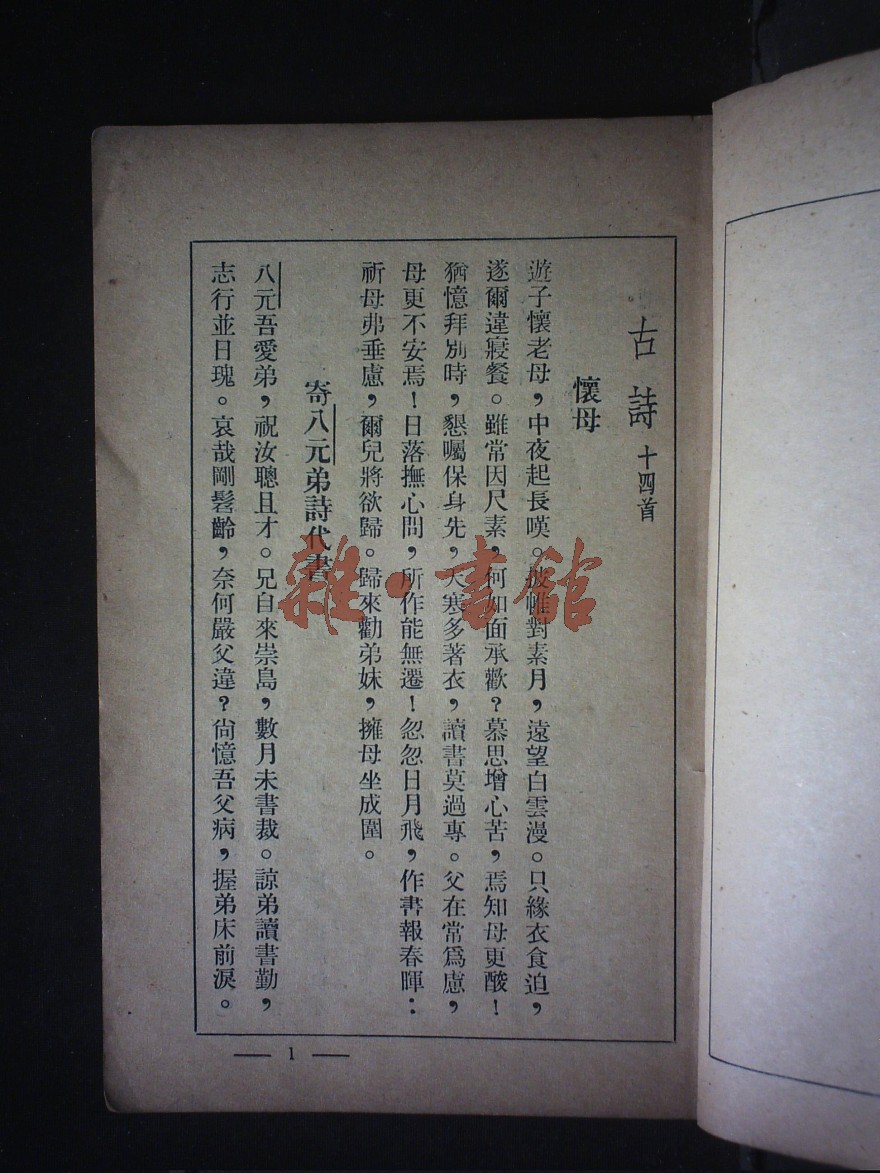 古詩 十四首
懷母
遊子懷老母，中夜起長嘆。披帷對素月，遠望白雲漫。只緣衣食迫，
遂爾違寢餐。雖常因尺素，何如面承歡？慕思增心苦，焉知母更酸！
猶憶拜別時，懇囑保身先，天寒多著衣，讀書莫過專。父在常爲慮，
母更不安焉！日落撫心問，所作能無遷！忽忽日月飛，作書報春暉：
祈母弗垂慮，爾兒將欲歸。歸來勸弟妹，擁母坐成圍。
寄八元弟詩代書
八元吾愛弟，祝汝聰且才。兄自來崇島，數月未書裁。諒弟讀書勤，
志行並日瑰。哀哉剛髫齡，奈何嚴父違？尙憶吾父病，握弟床前淚。
1
雜·書館